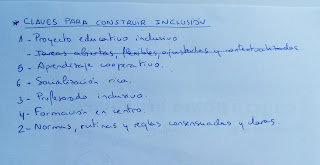 * CLAVES PARA CONSTRUIR INCLUSIÓN
1- Proyecto educativo inclusivo
- Tareas abiertas, flexibles, ajustadas y contextualizadas
5- Aprendizaje cooperativo.
6- Socialización rica.
3- Profesorado inclusivo.
4- Formación en centro.
2- Normas, rutinas y reglas consensuadas y claras.